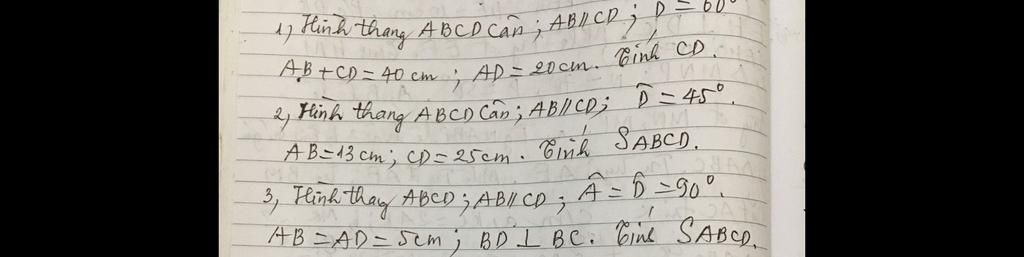 1, Hình thang ABCD cân ; AB//CD ; D = 60°
AB + CD = 40 cm ; AD = 20 cm . Tính CD .
2, Hình thang ABCD cân ; AB//CD ; D̂ = 45° .
AB = 13 cm ; CD = 25 cm . Tính SABCD .
3, Hình thag ABCD ; AB//CD ; Â = D̂ = 90° .
AB = AD = 5cm ; BD ⊥ BC . Tính SABCD .